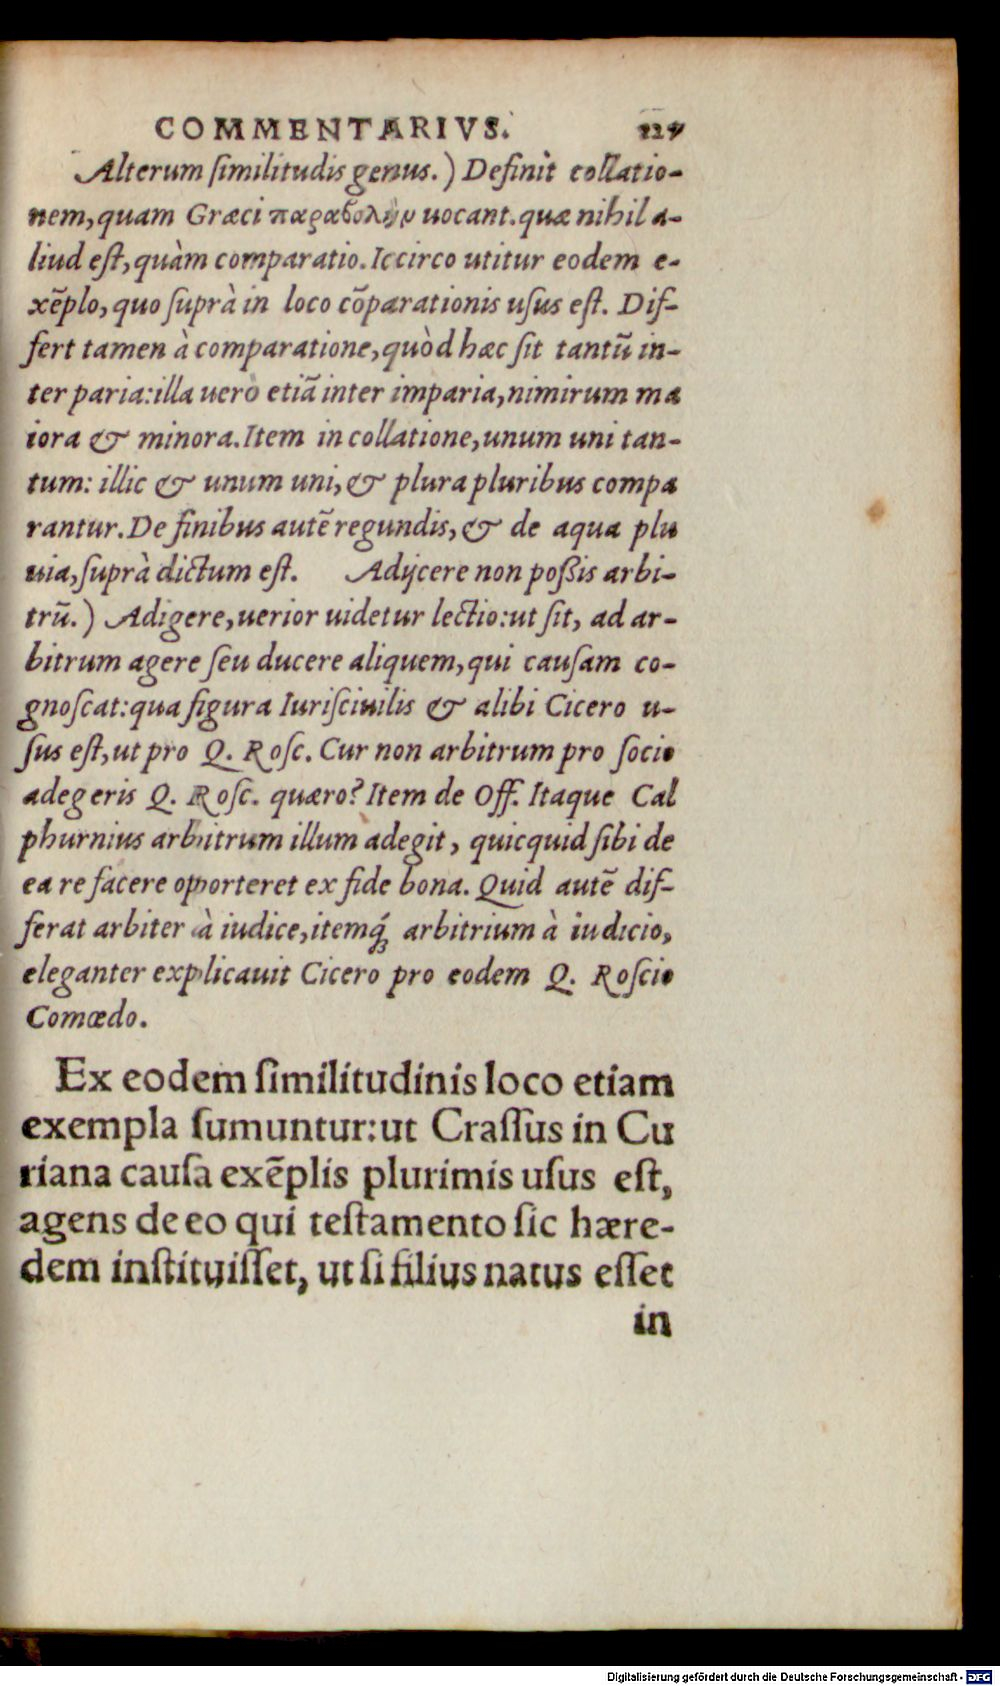 COMMENTARIVS.
Alterum ſimilitudis genus.) Definit collatio-
nem, quam Græci παραβολὴν uocant. quæ nihil a-
liud eſt, quàm comparatio. Iccirco utitur eodem e-
xẽplo, quo ſuprà in loco cõparationis uſus eſt. Diſ-
fert tamen à comparatione, quòd hæc ſit tantũ in-
ter paria: illa uerò etiã inter imparia, nimirum ma
iora & minora. Item in collatione, unum uni tan-
tum: illic & unum uni, & plura pluribus compa
rantur. De finibus autẽ regundis, & de aqua plu
uia, ſuprà dictum eſt. Adijcere non poßis arbi-
trũ.) Adigere, uerior uidetur lectio: ut ſit, ad ar-
bitrum agere ſeu ducere aliquem, qui cauſam co-
gnoſcat: qua figura Iuriſciuilis & alibi Cicero u-
ſus eſt, ut pro Q. Roſc. Cur non arbitrum pro ſocio
adegeris Q. Roſc. quæro? Item de Off. Itaque Cal
phurnius arbitrum illum adegit, quicquid ſibi de
ea re facere oporteret ex fide bona. Quid autẽ diſ-
ferat arbiter à iudice, itemq́; arbitrium à iudicio,
eleganter explicauit Cicero pro eodem Q. Roſcio
Comœdo.
Ex eodem ſimilitudinis loco etiam
exempla ſumuntur: ut Craſſus in Cu
riana cauſa exẽplis plurimis uſus eſt,
agens de eo qui teſtamento ſic hære-
dem inſtituiſſet, ut ſi filius natus eſſet
in
Digitalisierung gefördert durch die Deutsche Forschungsgemeinschaft - DFG